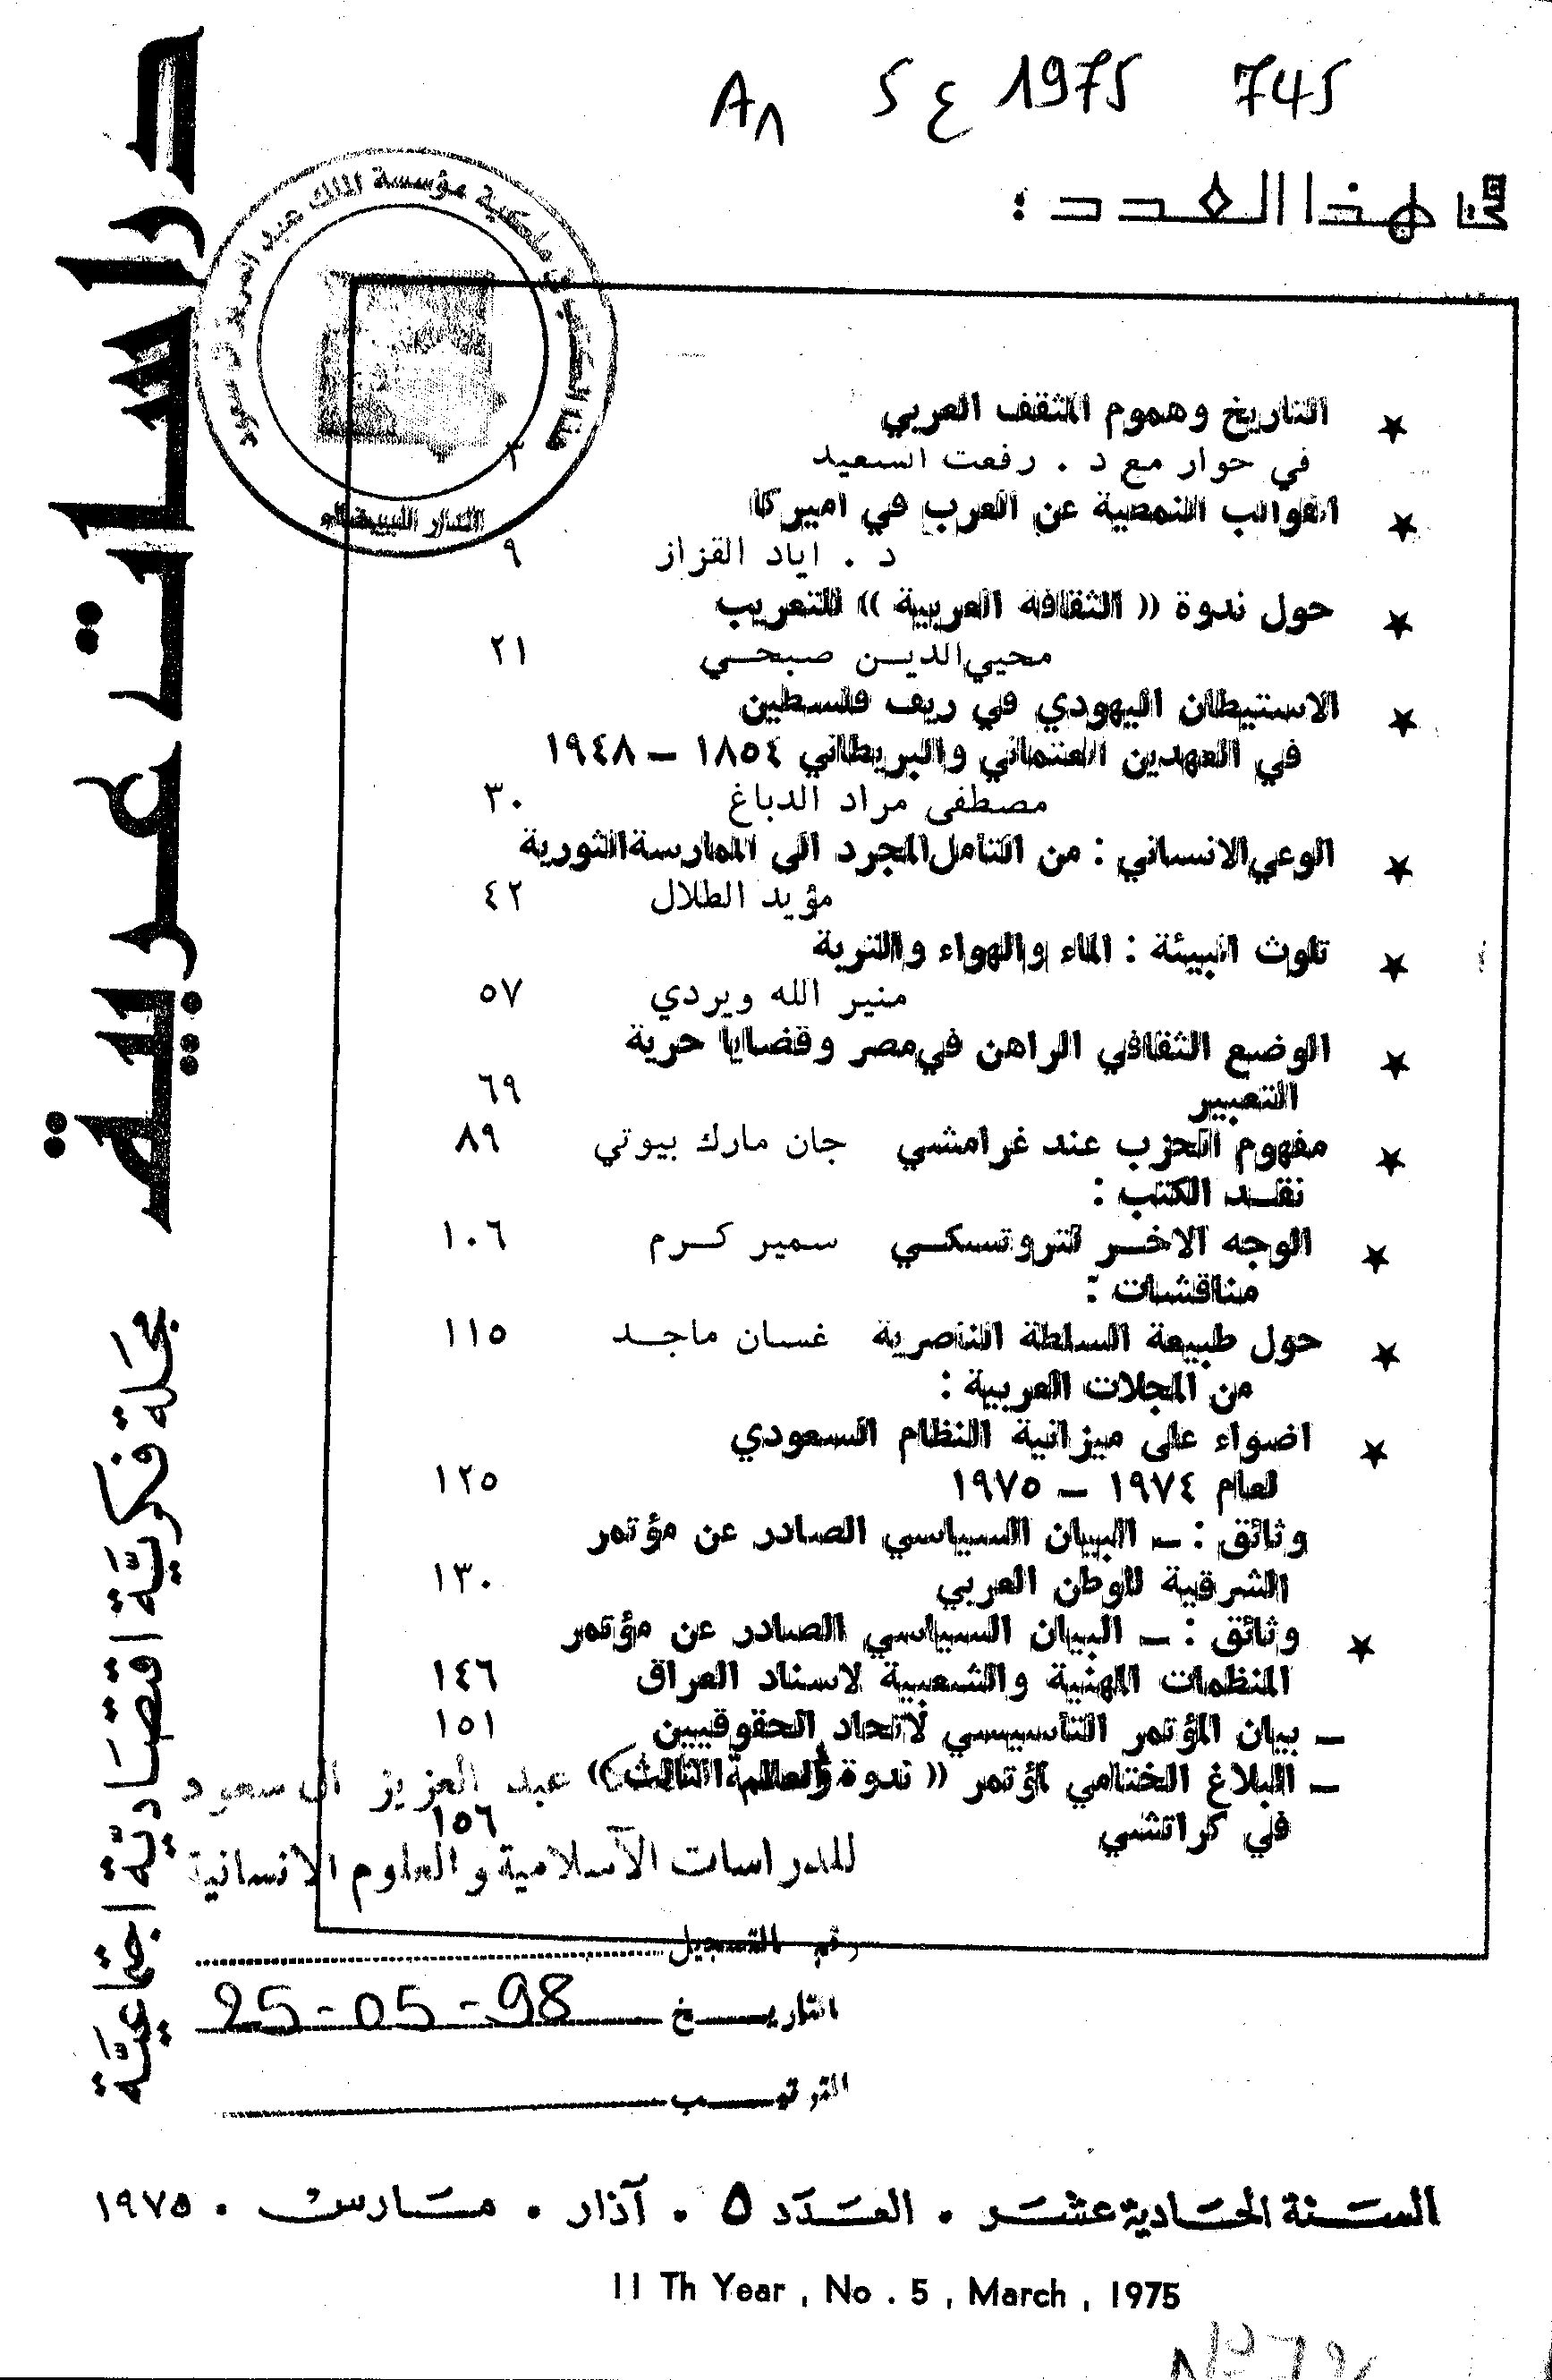 A٨ 5 ع 1975 745
في هذا العدد :
دراسات عربية
مجلة فكريّة اقتصاديّة اجتماعيّة
ملكية مؤسسة الملك عبد العزيز آل سعود
الدار البيضاء
★ التاريخ وهموم المثقف العربي
في حوار مع د . رفعت السعيد ٣
★ القوالب النمطية عن العرب في اميركا
د . اياد القزاز ٩
★ حول ندوة (( الثقافة العربية )) للتعريب
محيي الدين صبحي ٢١
★ الاستيطان اليهودي في ريف فلسطين
في العهدين العثماني والبريطاني ١٨٥٤ – ١٩٤٨
مصطفى مراد الدباغ ٣٠
★ الوعي الانساني : من التامل المجرد الى الممارسة الثورية
مؤيد الطلال ٤٢
★ تلوث البيئة : الماء والهواء والتربة
منير الله ويردي ٥٧
★ الوضع الثقافي الراهن في مصر وقضايا حرية
التعبير ٦٩
★ مفهوم الحزب عند غرامشي جان مارك بيوتي ٨٩
نقد الكتب :
★ الوجه الاخر لتروتسكي سمير كرم ١٠٦
مناقشات :
★ حول طبيعة السلطة الناصرية غسان ماجد ١١٥
من المجلات العربية :
★ اضواء على ميزانية النظام السعودي
لعام ١٩٧٤ – ١٩٧٥ ١٢٥
وثائق : – البيان السياسي الصادر عن مؤتمر
الشرقية للوطن العربي ١٣٠
★ وثائق : – البيان السياسي الصادر عن مؤتمر
المنظمات المهنية والشعبية لاسناد العراق ١٤٦
– بيان المؤتمر التاسيسي لاتحاد الحقوقيين ١٥١
– البلاغ الختامي لمؤتمر (( ندوة العالم الثالث )) عبد العزيز ال سعود
في كراتشي ١٥٦
للدراسات الآسلامية والعلوم الانسانية
رقم التسجيل
التاريخ 25-05-98
الترتيب
السنة الحادية عشر • العدد ٥ • آذار • مارس • ١٩٧٥
11 Th Year , No . 5 , March , 1975